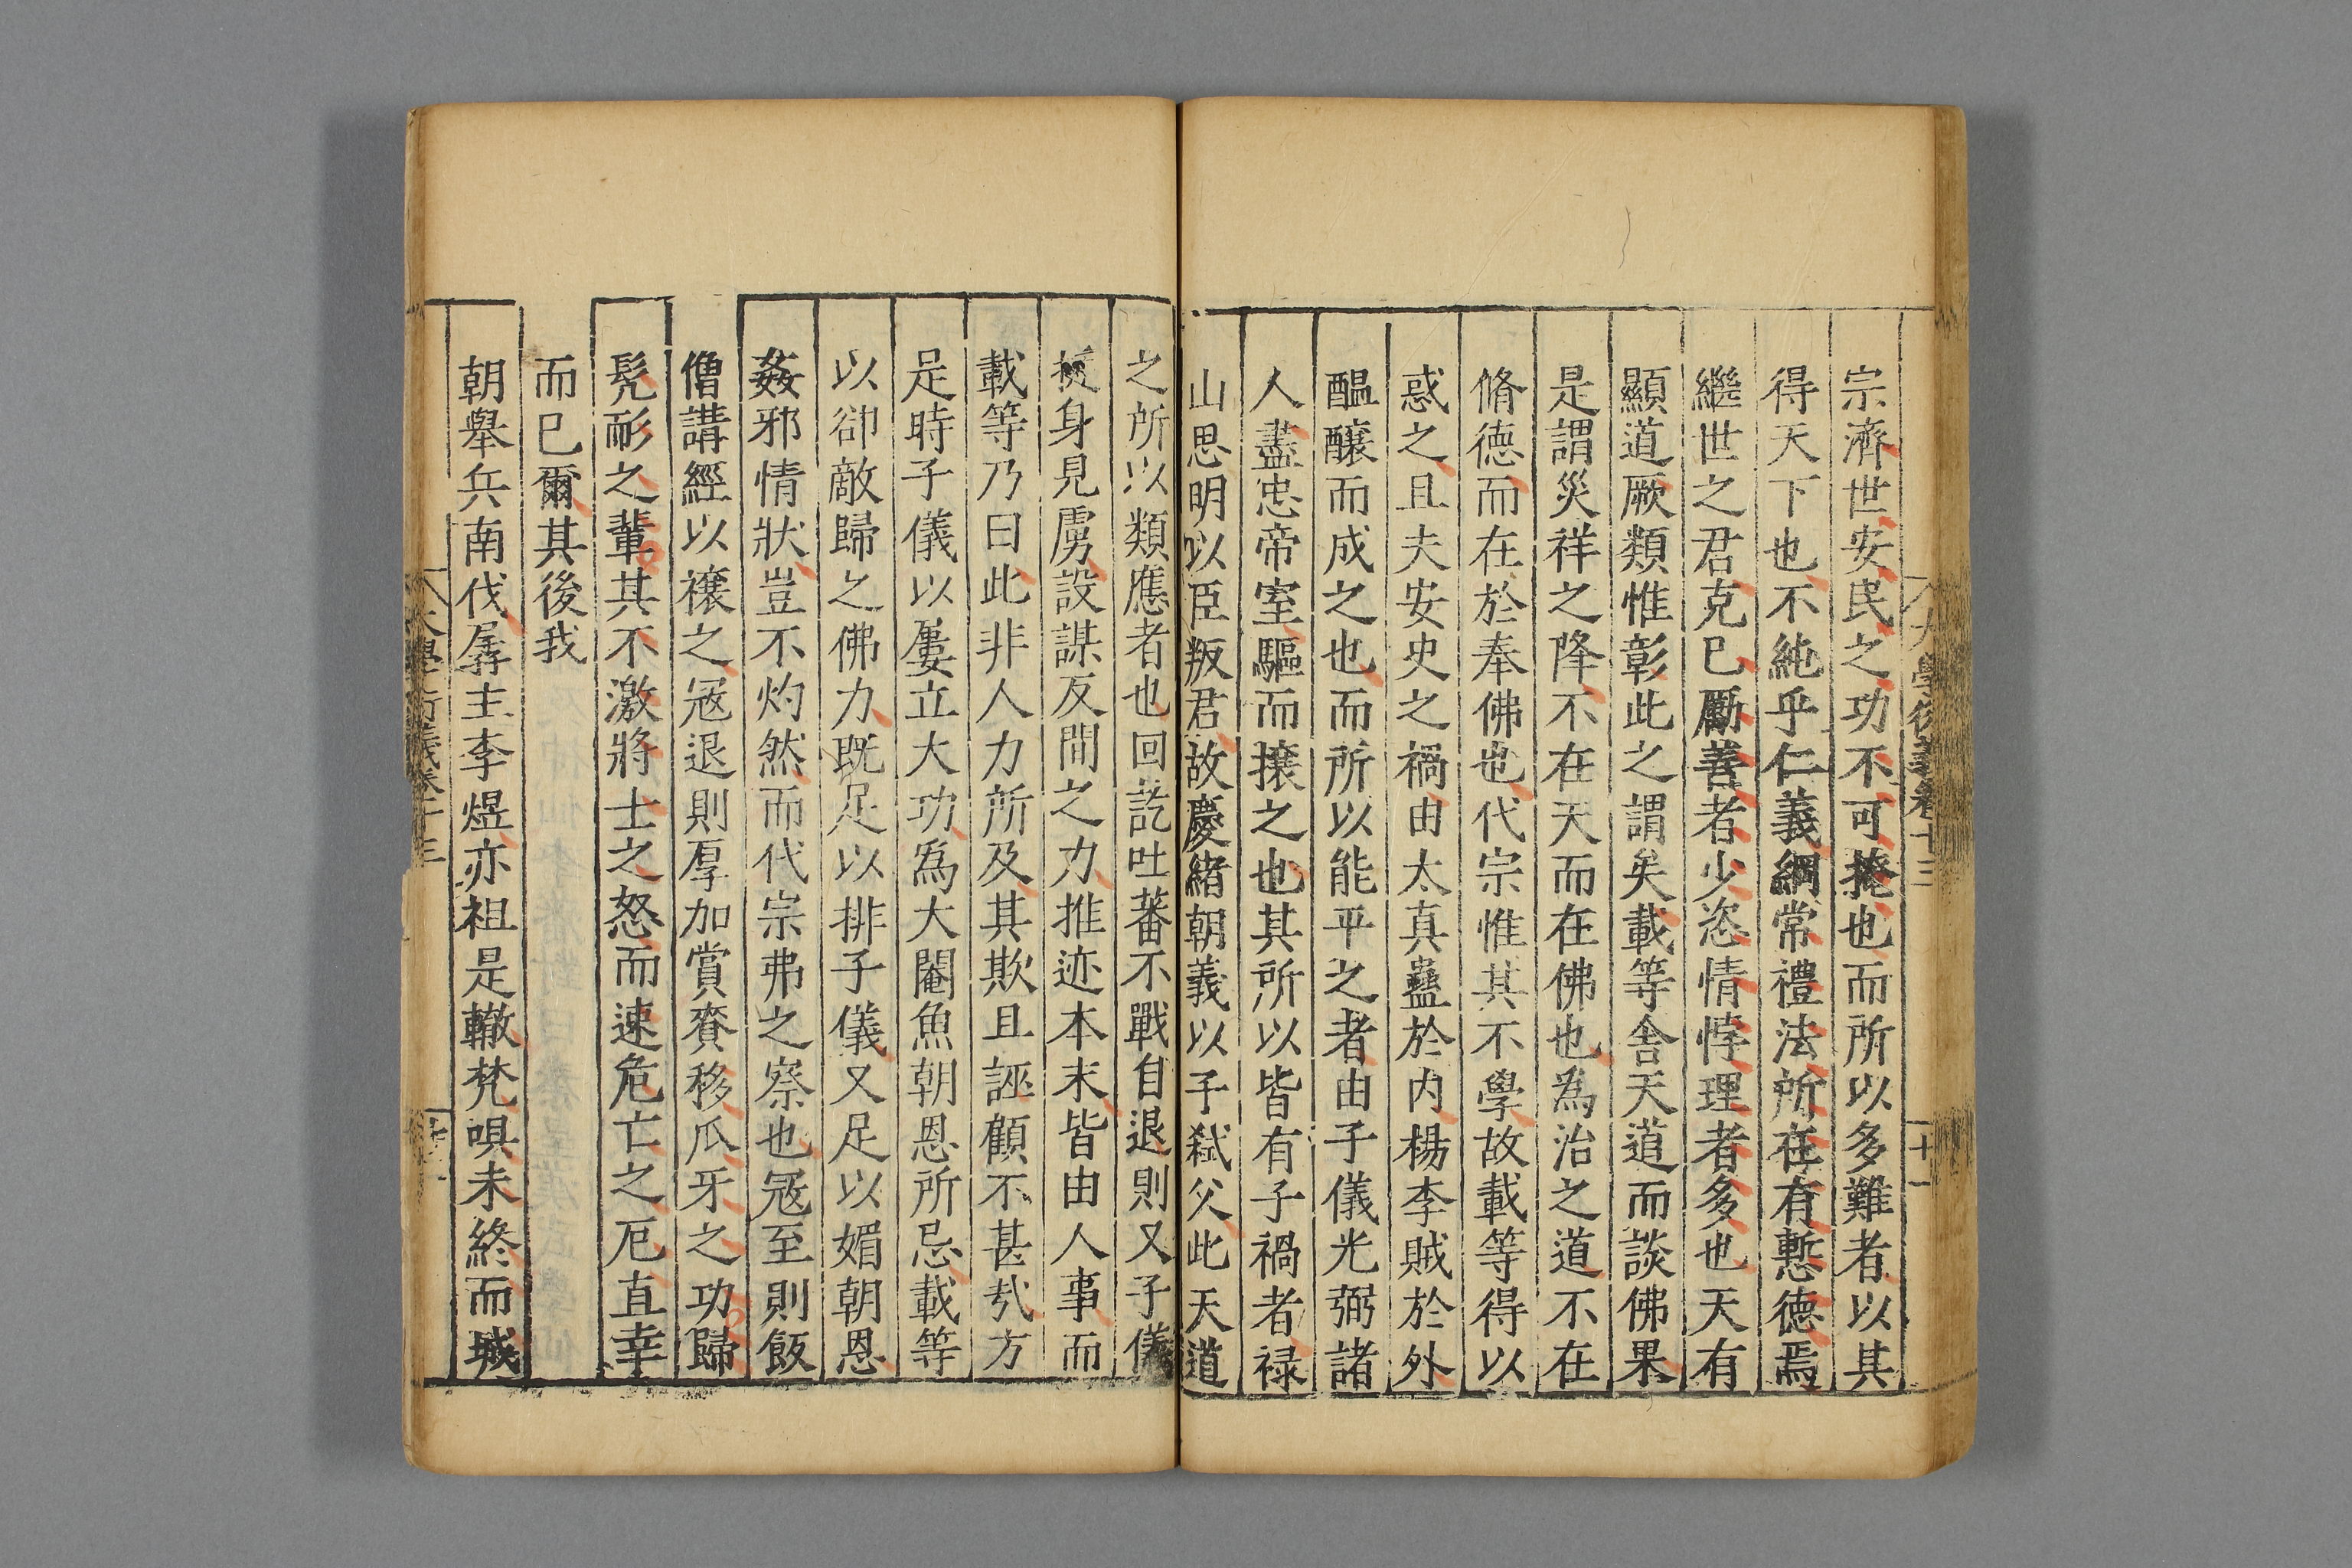 大學衍義卷十三
十一
宗濟世安民之功不可掩也而所以多難者以其
得天下也不純乎仁義綱常禮法所在有慙德焉
繼世之君克巳勵善者少恣情悖理者多也天有
顯道厥類惟彰此之謂矣載等舍天道而談佛果
是謂災祥之降不在天而在佛也為治之道不在
脩德而在於奉佛也代宗惟其不學故載等得以
惑之且夫安史之禍由太真蠱於内楊李賊於外
醖釀而成之也而所以能平之者由子儀光弼諸
人盡忠帝室驅而攘之也其所以皆有子禍者禄
山思明以臣叛君故慶緒朝義以子弑父此天道
之所以類應者也回訖吐蕃不戰自退則又子儀
挺身見虜設謀反間之力推迹本末皆由人事而
載等乃曰此非人力所及其欺且誣顧不甚㢤方
是時子儀以屢立大功為大閹魚朝恩所忌載等
以卻敵歸之佛力既足以排子儀又足以媚朝恩
姦邪情狀豈不灼然而代宗弗之察也冦至則飯
僧講經以禳之冦退則厚加賞賚移爪牙之功歸
髠耏之輩其不激將士之怒而速危亡之厄直幸
而巳爾其後我
朝舉兵南伐孱主李煜亦祖是轍梵唄未終而城
大學衍義卷十三